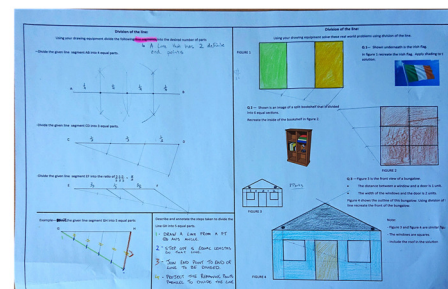 Division of the line:
Using your drawing equipment divide the following line segments into the desired number of parts
↳ A line that has 2 definite
end points
- Divide the given line segment AB into 4 equal parts.
A
B
- Divide the given line segment CD into 5 equal parts.
- Divide the given line segment EF into the ratio of
Example - the given line segment GH into 5 equal parts.
Describe and annotate the steps taken to divide the
line GH into 5 equal parts.
1 - DRAW A LINE FROM A PT
@ ANY ANGLE
2 - STEP OUT 5 EQUAL
3 - JOIN END POINT TO END OF
LINE TO BE DIVIDED
PARALLEL TO DIVIDE THE LINE
Division of the line:
Using your drawing equipment solve these real world problems using division of the line.
FIGURE 1
Q 1 - Shown underneath is the Irish flag.
In figure 1 recreate the Irish flag. Apply shading to
Q 2 - Shown is an image of a split bookshelf that is divided
into 6 equal sections.
Recreate the inside of the bookshelf in figure 2.
FIGURE 2
Q 3 - Figure 3 is the front view of a bungalow.
The distance between a window and a door is 2 units.
The width of the windows and the door is 2 units.
Figure 4 shows the outline of this bungalow. Using division of
line recreate the front of the bungalow.
FIGURE 3
FIGURE 4
Note:
- Figure 3 and figure 4 are similar
- The windows are squares
- Include the roof in the solution